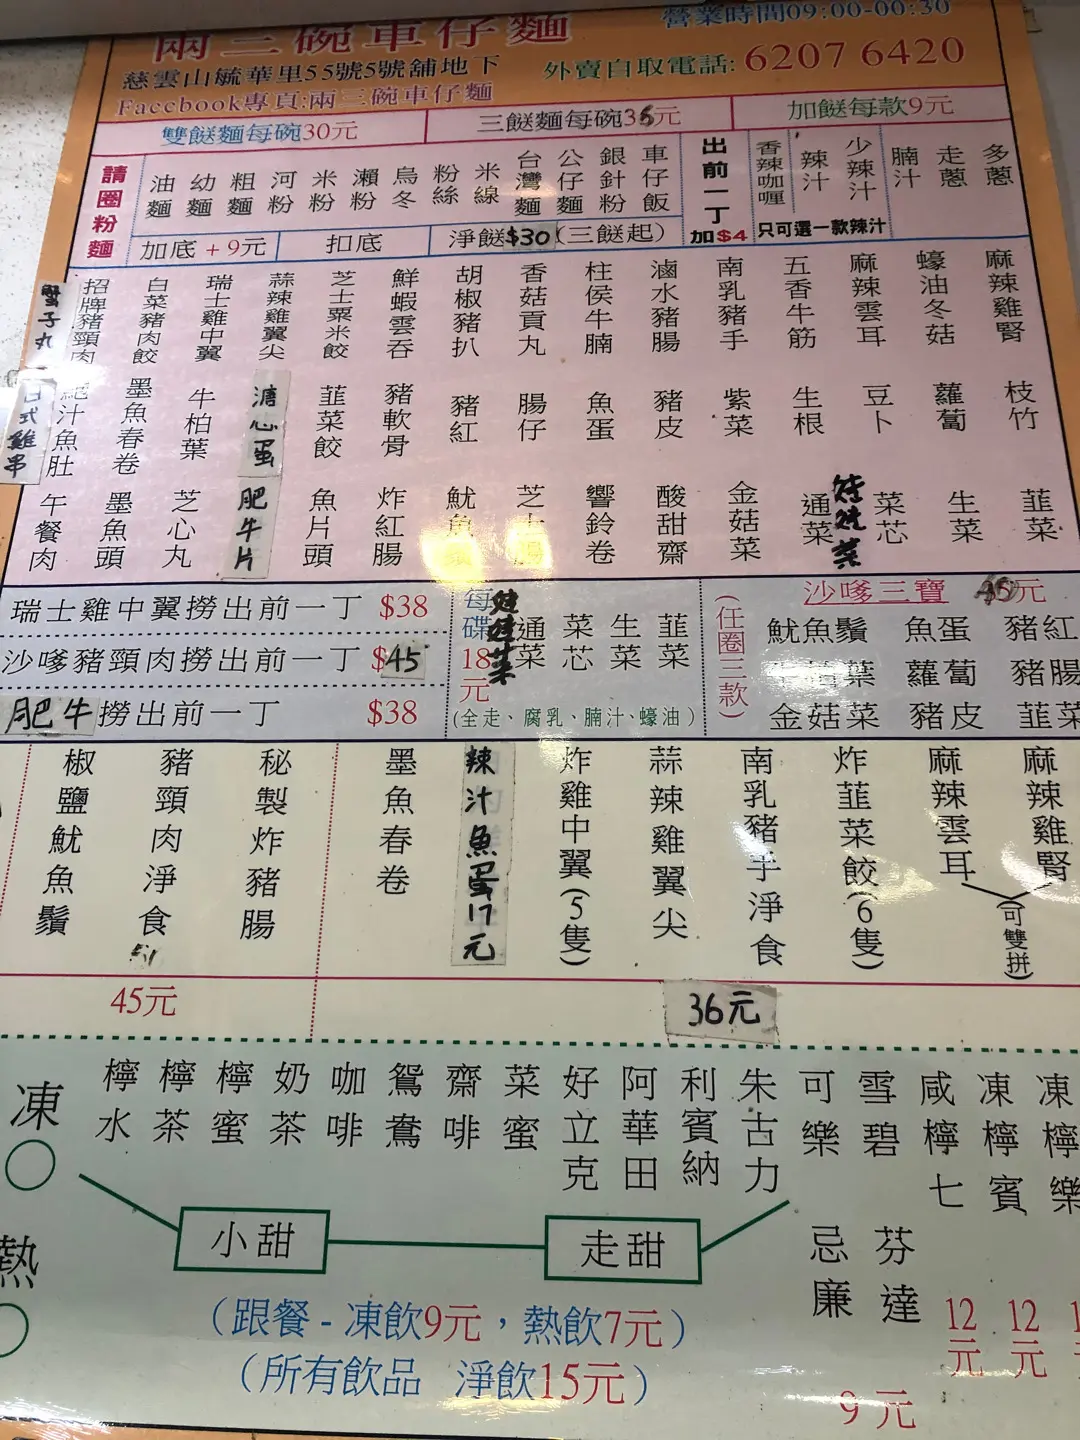 兩三碗車仔麵
營業時間09:00-00:30
慈雲山毓華里55號5號舖地下
外賣自取電話: 6207 6420
Faccbook專頁:兩三碗車仔麵
雙餸麵每碗30元
三餸麵每碗36元
加餸每款9元
請圈粉麵
油麵
幼麵
粗麵
河粉
米粉
瀨粉
烏冬
粉絲
米線
台灣麵
公仔麵
銀針粉
車仔飯
加底 + 9元
扣底
淨餸$30(三餸起)
出前一丁加$4
香辣咖喱
辣汁
少辣汁
只可選一款辣汁
腩汁
走蔥
多蔥
蟹子丸
招牌豬頸肉
白菜豬肉餃
瑞士雞中翼
蒜辣雞翼尖
芝士粟米餃
鮮蝦雲吞
胡椒豬扒
香菇貢丸
柱侯牛腩
滷水豬腸
南乳豬手
五香牛筋
麻辣雲耳
蠔油冬菇
麻辣雞腎
式雞串
汁魚肚
墨魚春卷
牛柏葉
溏心蛋
韮菜餃
豬軟骨
豬紅
腸仔
魚蛋
豬皮
紫菜
生根
豆卜
蘿蔔
枝竹
午餐肉
墨魚頭
芝心丸
肥牛片
魚片頭
炸紅腸
魷魚
芝士
響鈴卷
酸甜齋
金菇菜
通菜
娃娃菜
菜芯
生菜
韮菜
瑞士雞中翼撈出前一丁 $38
沙嗲豬頸肉撈出前一丁 $45
肥牛撈出前一丁 $38
每碟18元
娃娃菜
通菜
菜芯
生菜
韮菜
(全走、腐乳、腩汁、蠔油)
(任圈三款)
沙嗲三寶 45元
魷魚鬚 魚蛋 豬紅
葉 蘿蔔 豬腸
金菇菜 豬皮 韮菜
椒鹽魷魚鬚
豬頸肉淨食
秘製炸豬腸
45元
墨魚春卷
辣汁魚蛋17元
炸雞中翼(5隻)
蒜辣雞翼尖
南乳豬手淨食
炸韮菜餃(6隻)
麻辣雲耳
麻辣雞腎
(可雙拼)
36元
凍
熱
檸水
檸茶
檸蜜
奶茶
咖啡
鴛鴦
齋啡
菜蜜
好立克
阿華田
利賓納
朱古力
可樂
雪碧
忌廉
芬達
9元
咸檸七
12元
凍檸賓
12元
凍檸樂
小甜
走甜
(跟餐 - 凍飲9元，熱飲7元)
(所有飲品 淨飲15元)